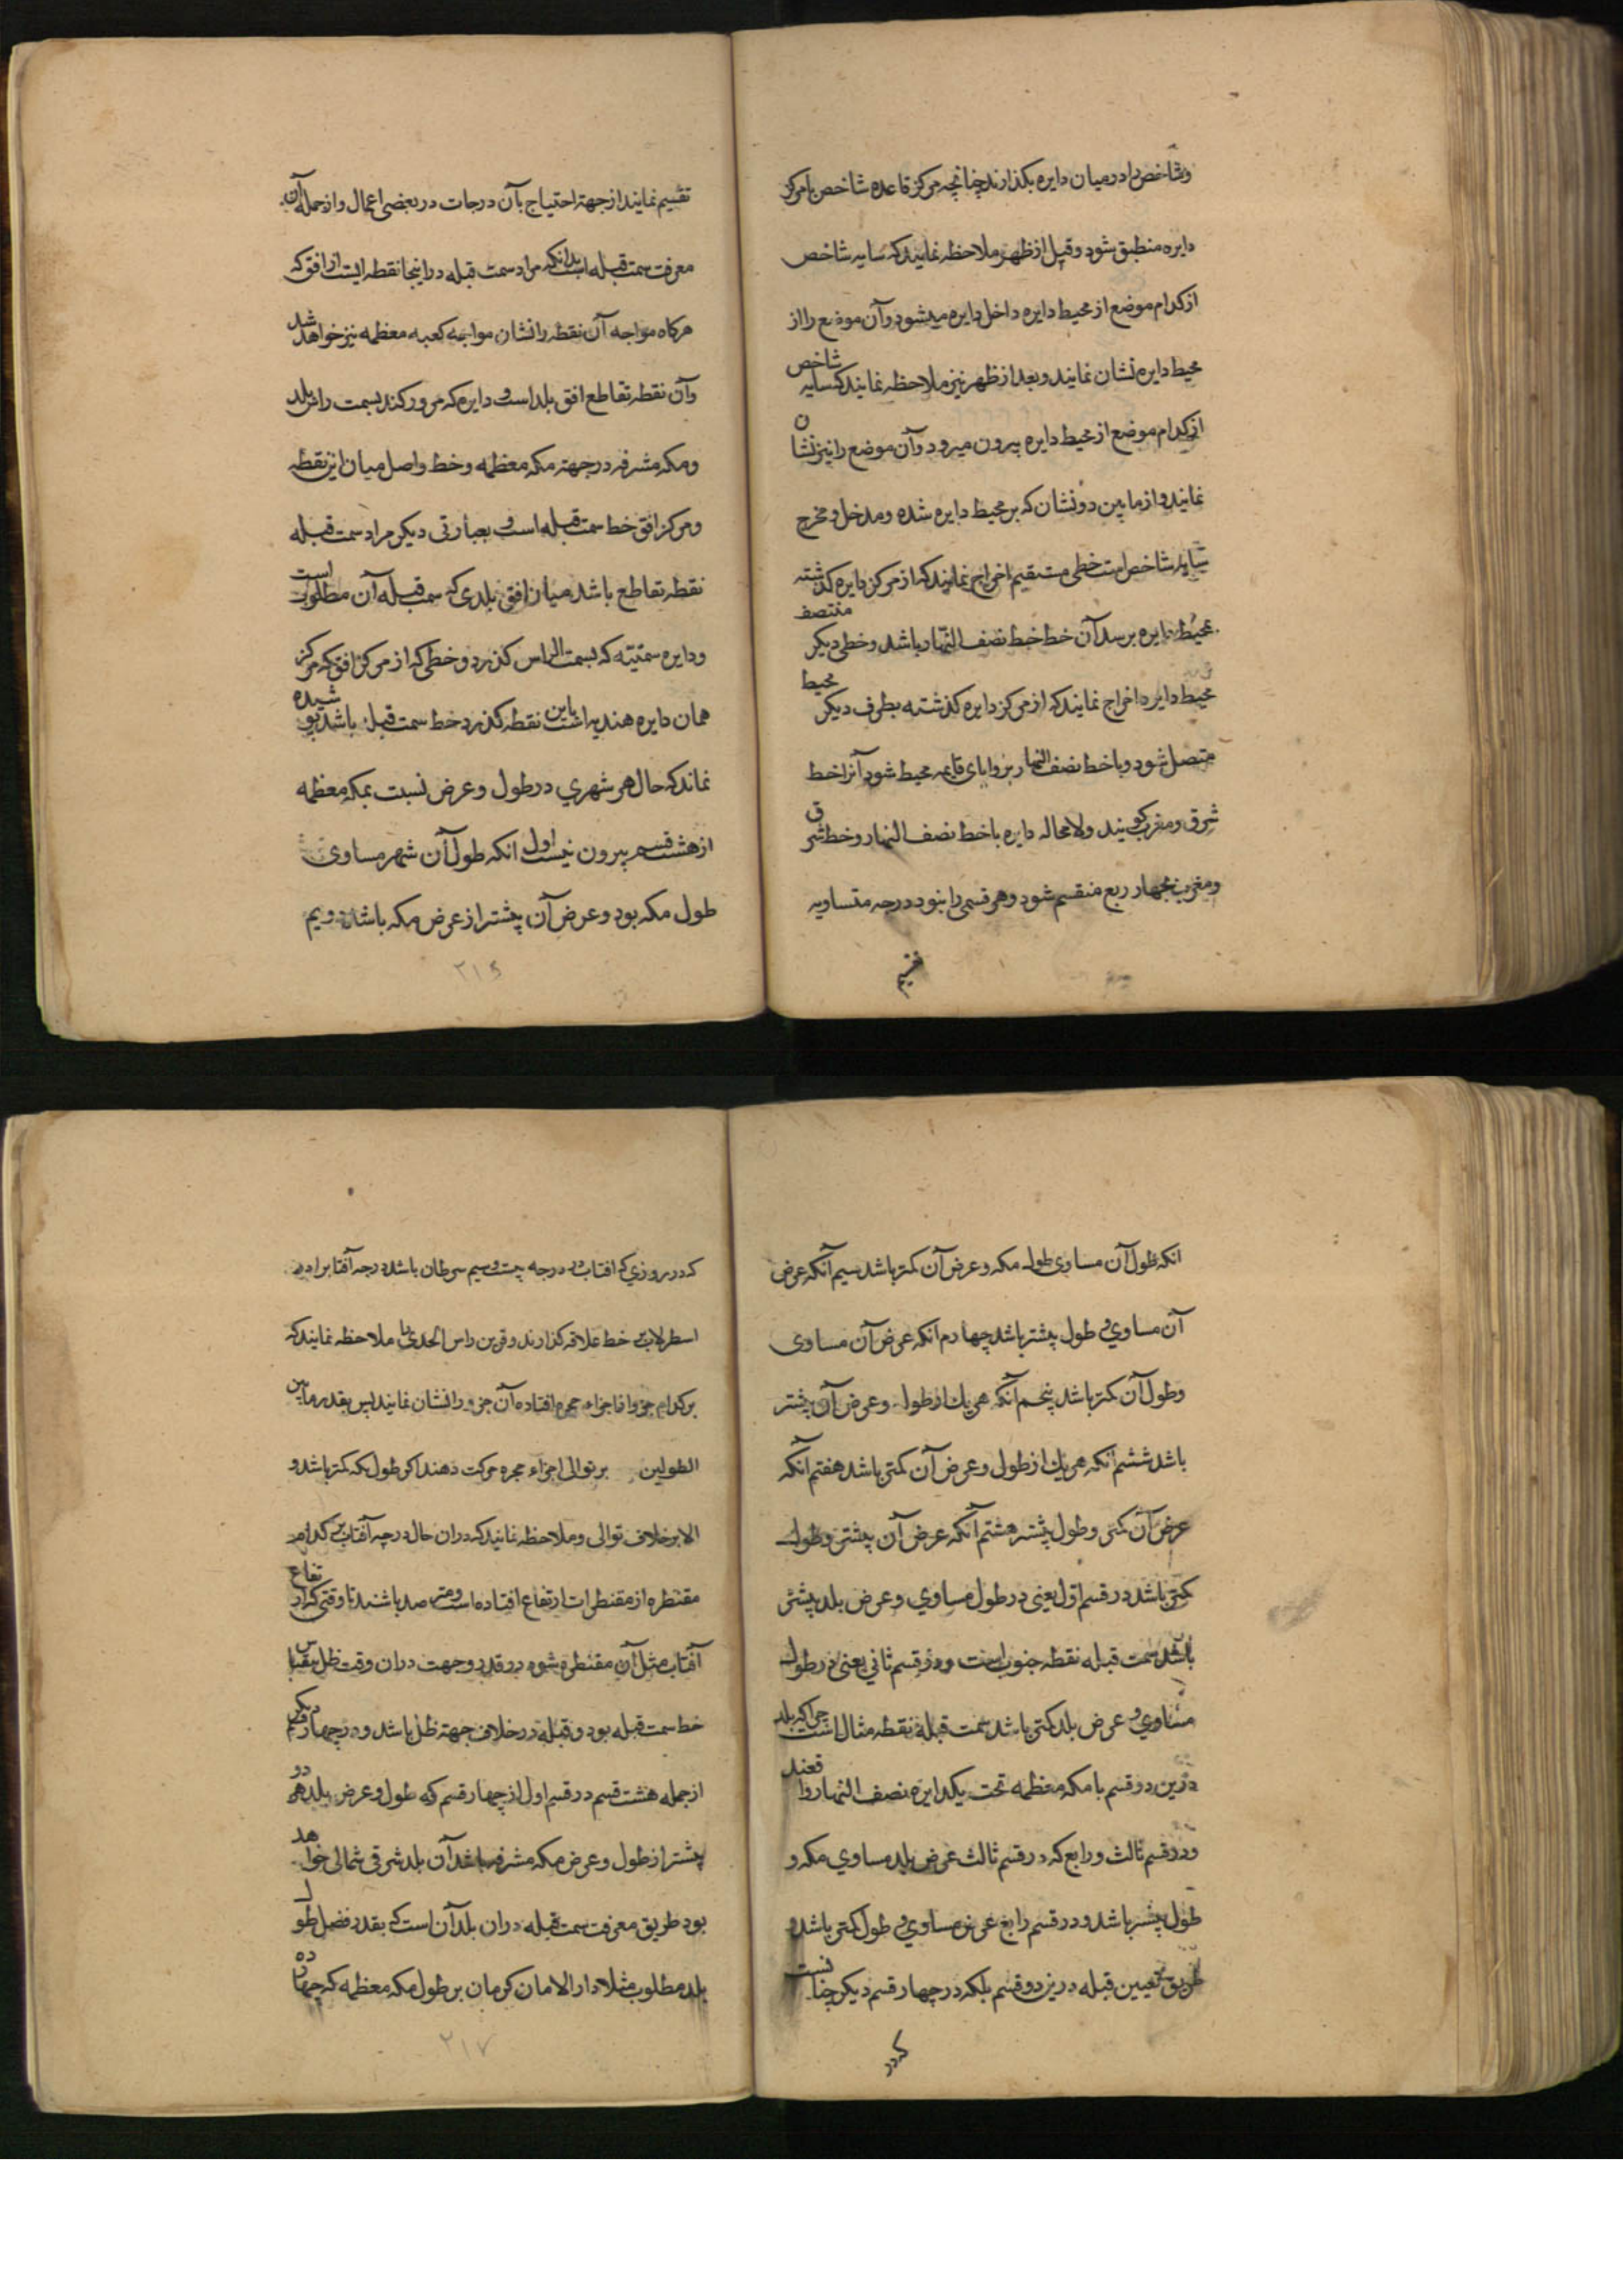 وشاخص را در میان دایره بکذارند چنانچه مرکز قاعده شاخص با مرکز
دایره منطبق شود و قبل از ظهر ملاحظه نمایند که سایه شاخص
از کدام موضع از محیط دایره داخل دایره میشود و آن موضع را از
محیط دایره نشان نمایند و بعد از ظهر نیز ملاحظه نمایند که سایه شاخص
از کدام موضع از محیط دایره بیرون میرود و آن موضع را نیز نشان
نمایند و از مابین دو نشان که بر محیط دایره شده و مدخل و مخرج
سایه شاخص است خطی مستقیم اخراج نمایند که از مرکز دایره کذشته
بمحیط دایره برسد آن خط خط نصف النهار باشد و خطی دیکر منتصف
محیط دایره اخراج نمایند که از مرکز دایره کذشته بطرف دیکر محیط
متصل شود و با خط نصف النهار بزوایای قایمه محیط شود آنرا خط
شرق و مغرب کویند ولا محاله دایره با خط نصف النهار و خط شرق
و مغرب بچهار ربع منقسم شود و هر قسمی را بنود درجه متساویه
تقسیم
تقسیم نمایند از جهة احتیاج بآن درجات در بعضی اعمال و از جمله آن
معرفت سمت قبله است بدانکه مراد سمت قبله در اینجا نقطه ایست از افق که
هرکاه مواجه آن نقطه را نشان مواجه کعبه معظمه نیز خواهد شد
و آن نقطه تقاطع افق بلد است و دایره که مرور کند بسمت راس بلد
و مکه مشرفه در جهة مکه معظمه و خط واصل میان این نقطه
و مرکز افق خط سمت قبله است و بعبارتی دیکر مراد سمت قبله
نقطه تقاطع باشد میان افق بلدی که سمت قبله آن مطلوب است
و دایره سمتیه که بسمت الراس کذرد و خطی که از مرکز افق که مرکز
همان دایره هندیه است باین نقطه کذرد خط سمت قبله باشد پوشیده
نماند که حال هر شهری در طول و عرض نسبت بمکه معظمه
از هشت قسم بیرون نیست اول انکه طول آن شهر مساوی
طول مکه بود و عرض آن بیشتر از عرض مکه باشد دویم
۲۱۶
انکه طول آن مساوی طول مکه و عرض آن کمتر باشد سیم آنکه عرض
آن مساوی و طول بیشتر باشد چهارم انکه عرض آن مساوی
و طول آن کمتر باشد پنجم آنکه هر یك از طول و عرض آن بیشتر
باشد ششم انکه هر یك از طول و عرض آن کمتر باشد هفتم انکه
عرض آن کمتر و طول بیشتر هشتم آنکه عرض آن بیشتر و طول
کمتر باشد در قسم اول یعنی در طول مساوی و عرض بلد بیشتر
باشد سمت قبله نقطه جنوب است و در قسم ثانی یعنی در طول
مساوی و عرض بلد کمتر باشد سمت قبله نقطه شمال است چراکه بلد
درین دو قسم با مکه معظمه تحت یکدایره نصف النهار واقعند
و در قسم ثالث و رابع که در قسم ثالث عرض بلد مساوی مکه و
طول بیشتر باشد و در قسم رابع عرض مساوی و طول کمتر باشد و
طریق تعیین قبله درین دو قسم بلکه در چهار قسم دیکر چنانست
که در
که در روزی که افتاب در درجه بیست و سیم سرطان باشد درجه آفتابرا در
اسطرلاب بر خط علاقه کذارند و قرین راس الجدی را ملاحظه نمایند که
بر کدام جزو از اجزاء حجره افتاده آن جزء را نشان نمایند پس بقدر مابین
الطولین بر توالی اجزاء حجره حرکت دهند اکر طول مکه کمتر باشد و
الا بر خلاف توالی و ملاحظه نمایند که دران حال درجه آفتاب بر کدام
مقنطره از مقنطرات ارتفاع افتاده است و مترصد باشند تا وقتی که ارتفاع
آفتاب مثل آن مقنطره شود در قدر و جهت دران وقت ظل مقیاس
خط سمت قبله بود و قبله در خلاف جهة ظل باشد و در چهار قسم دیکر
از جمله هشت قسم در قسم اول از چهار قسم که طول و عرض بلد هر دو
بیشتر از طول و عرض مکه مشرفه باشد آن بلد شرقی شمالی خواهد
بود طریق معرفت سمت قبله دران بلد آن است که بقدر فضل طول
بلد مطلوب مثلا دار الامان کرمان بر طول مکه معظمه که چهارده
۲۱۷